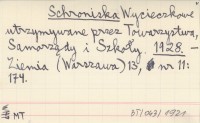 Schroniska Wycieczkowe
utrzymywane przez Towarzystwa,
Samorządy i Szkoły. 1928. –
Ziemia (Warszawa) 13, nr 11:
174.
MT
BT/043/1921